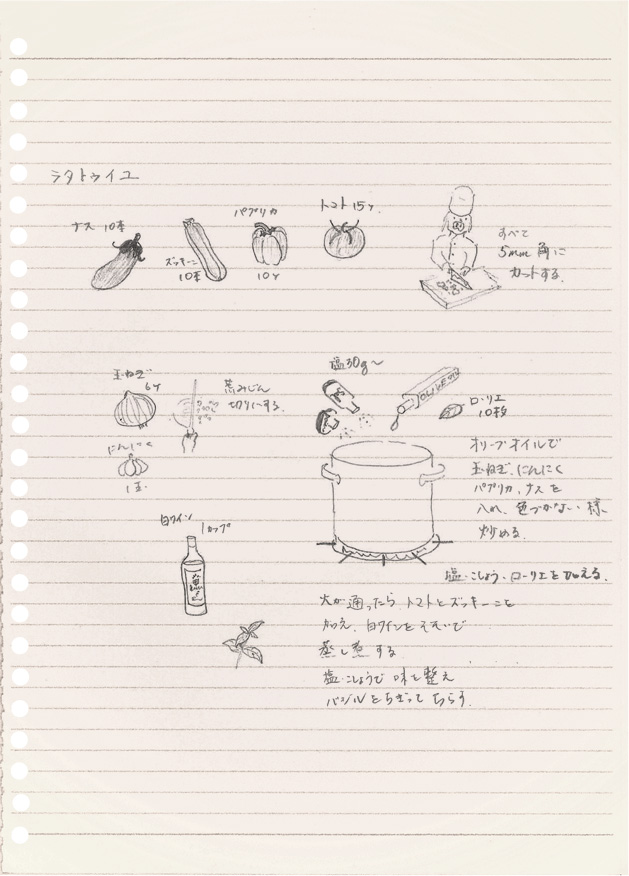 ラタトゥイユ
ナス 10本
ズッキーニ
10本
パプリカ
10ケ
トマト 15ケ
すべて
5mm 角に
カットする。
玉ねぎ
6ケ
にんにく
1玉
みじん
切りにする。
塩30g〜
OLIVE OIL
ローリエ
10枚
オリーブオイルで
玉ねぎ、にんにく
パプリカ、ナスを
入れ、色づかない様、
炒める。
塩・こしょう・ローリエを加える。
白ワイン
1カップ
火が通ったら、トマトとズッキーニを
加え、白ワインをそそいで
蒸し煮する
塩・こしょうで 味を整え
バジルをちぎってちらす。